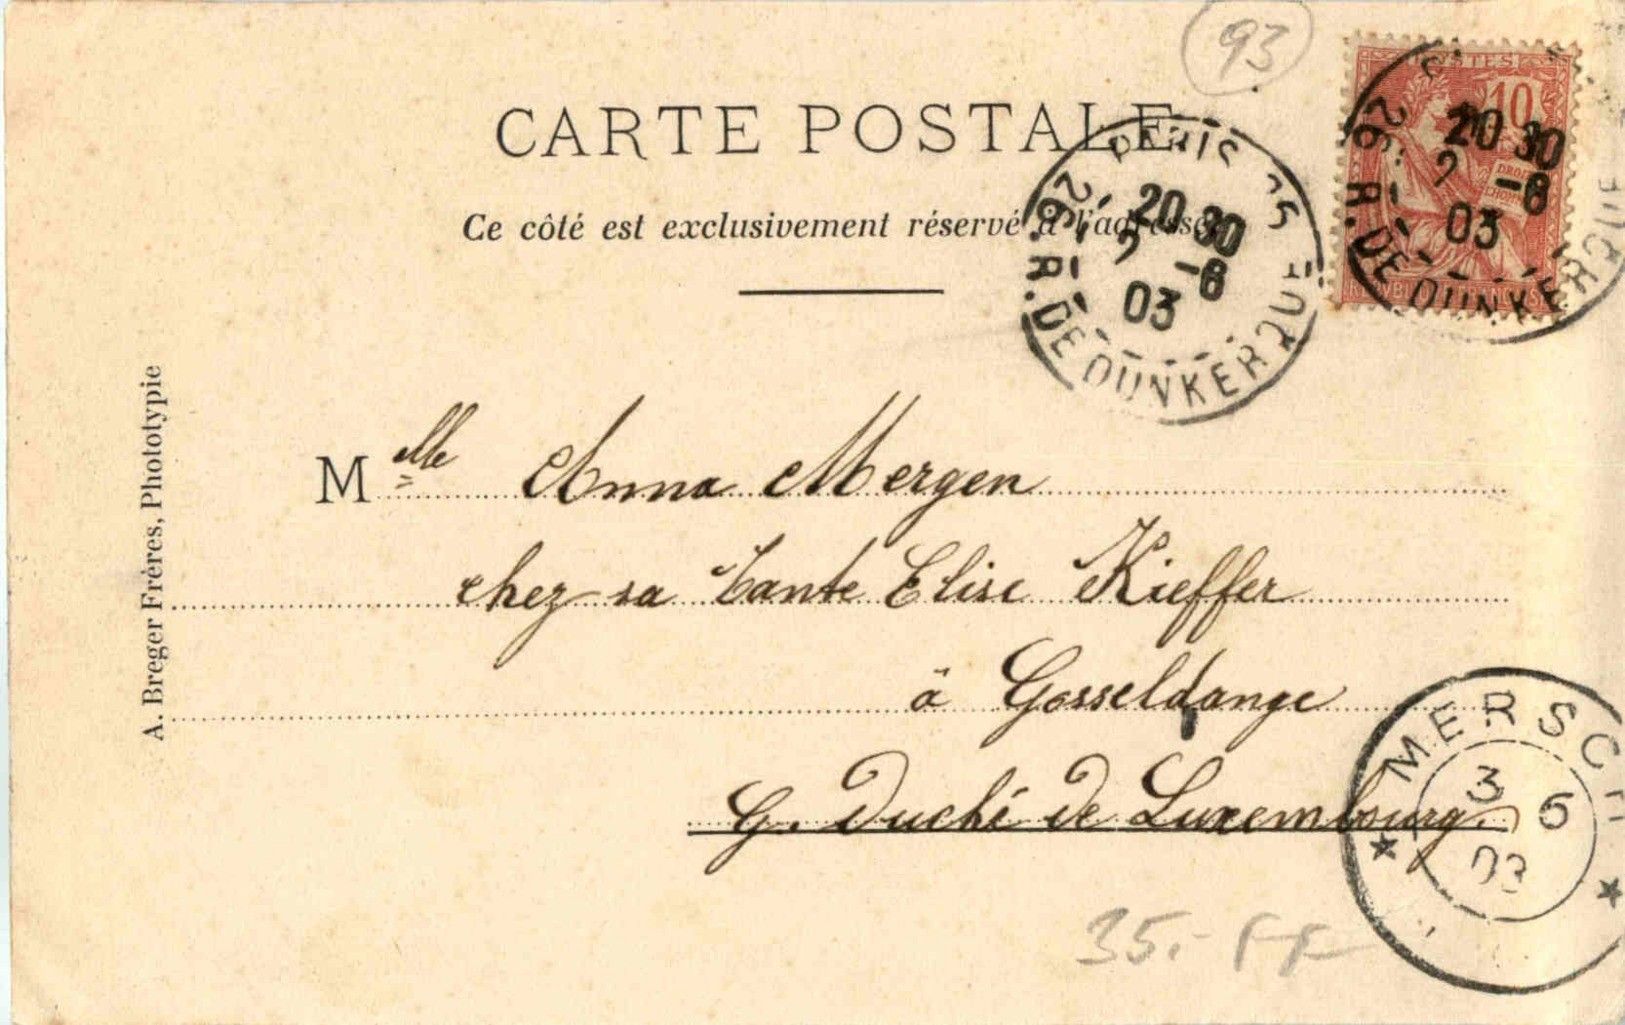 93
CARTE POSTALE
Ce côté est exclusivement réservé à l'adresse
POSTES
10
PARIS
20 30
2 -6
03
26. R. DE DUNKERQUE
20 30
2 -6
03
26. R. DE DUNKERQUE
A. Breger Frères, Phototypie
Melle Anna Mergen
chez sa Tante Elise Kieffer
à Gosseldange
G. Duché de Luxembourg
MERSCH
3 6
03
35.- FF